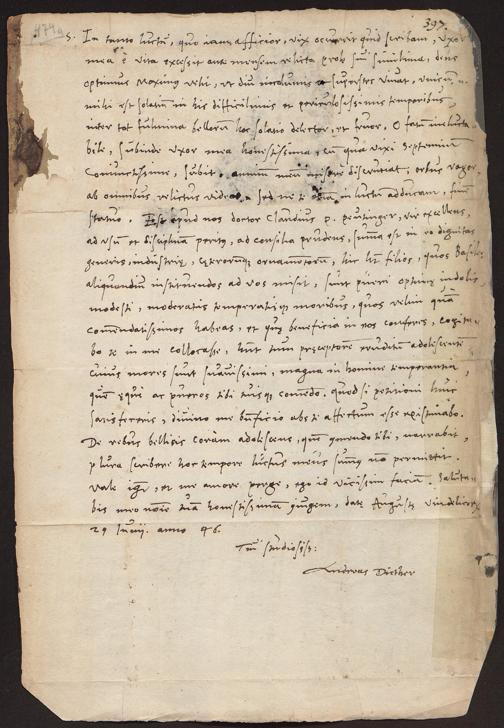 397
S. In tanto luctu, quo iam afficior, vix occurrit quid scribam, uxor
mea è vita excessit ante mensem relicta prole sui simillima, deus
optimus maximus velit, ut diu incolumis superstes vivat, unicum n.
mihi est solatium in his difficillimis et periculosissimis temporibus,
inter tot fulmina bellorum hoc solatio delector, et fruor. O fatum inelucta
bile, subinde uxor mea honestissima, cum qua vixi septennium
coniunctissime, subit, animum meum misere discruciat,
ab omnibus relictus videor, sed ne te etiam in luctum adducam, finem
statuo. Est apud nos doctor Claudius p. peutinger, vir excellens,
ad usum et disciplinam peritus, ad consilia prudens, summa est in eo dignitas
generis, industriæ, cæterorumque ornamentorum, hic suos filios, quos Basileam
aliquandiu instruendos ad vos misit, sunt pueri optimæ indolis,
modesti, moderatis temperatisque moribus, quos velim quam
commendatissimos habeas, et quæ beneficia in eos conferes, cogita
bo te in me collocasse, habent suum præceptorem eruditum adolescentem
cuius mores sunt suavissimi, magna in homine temperantia,
quem æque ac pueros tibi tuisque commendo. quod si petitioni huic
satisfeceris, divino me beneficio abs te affectum esse existimabo.
De rebus bellicis coram adolescens, quem commendo tibi, narrabit,
plura scribere hoc tempore luctus meus summus non permittit.
vale igitur, et me amore perge, ego id vicissim faciam. Saluta
bis meo nomine tuam honestissimam coniugem, datæ Augustæ vindelicorum
29 Iunii. anno 46.
Tui studiosiss:
Andreas Diether